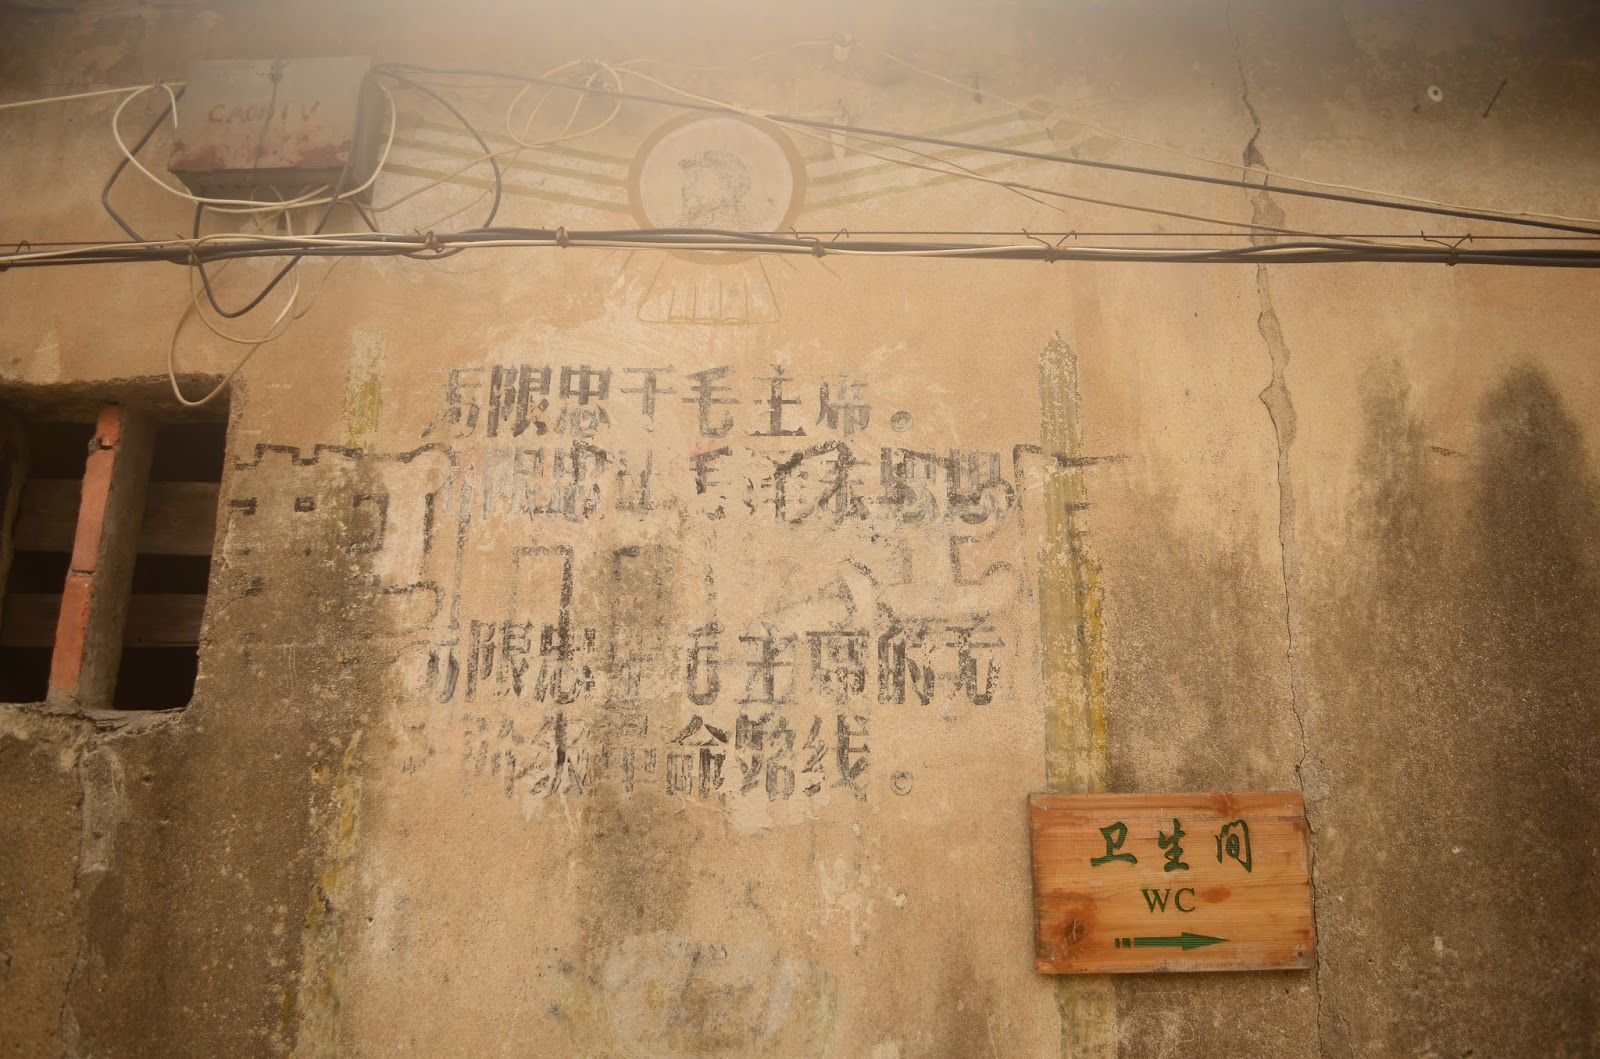 无限忠于毛主席。
无限忠于毛泽东思想
无限忠于毛主席的无
产阶级革命路线。
卫生间
WC